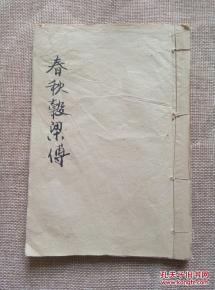 春秋穀梁傳
孔夫子旧书网